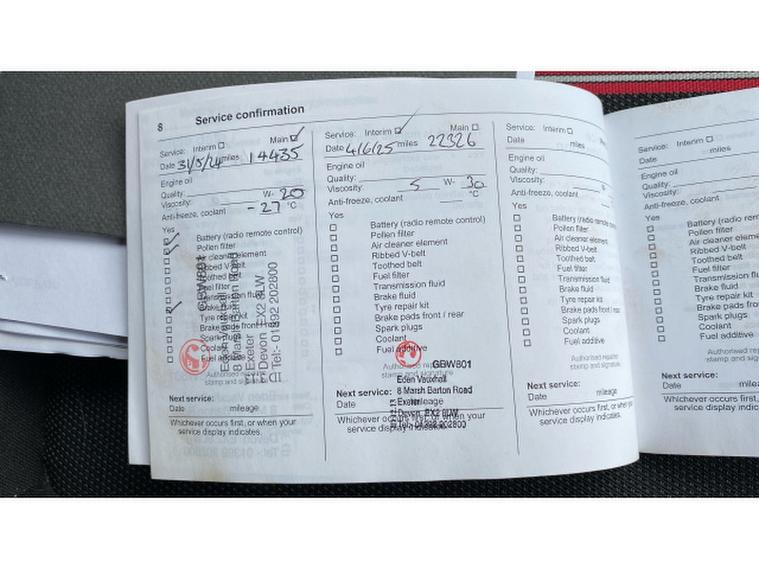 8 Service confirmation
Service: Interim ☐ Main ☑
Date 31/5/24 miles 14435
Engine oil
Quality:
Viscosity: W- 20
Anti-freeze, coolant - 27 °C
Yes
Battery (radio remote control)
Pollen filter
Air cleaner element
Ribbed V-belt
Toothed belt
Fuel filter
Transmission fluid
Brake fluid
Tyre repair kit
Brake pads front / rear
Spark plugs
Coolant
Fuel additive
Authorised repairer
stamp and signature
GBW801
Eden Vauxhall
8 Marsh Barton Road
Exeter
Devon EX2 8LW
Tel:- 01392 202800
Next service:
Date mileage
Whichever occurs first, or when your
service display indicates.
Service: Interim ☑ Main ☐
Date 4/6/25 miles 22326
Engine oil
Quality:
Viscosity: 5 W- 30
Anti-freeze, coolant °C
Yes
Battery (radio remote control)
Pollen filter
Air cleaner element
Ribbed V-belt
Toothed belt
Fuel filter
Transmission fluid
Brake fluid
Tyre repair kit
Brake pads front / rear
Spark plugs
Coolant
Fuel additive
Authorised repairer
stamp and signature
GBW801
Eden Vauxhall
8 Marsh Barton Road
Exeter
Devon EX2 8LW
Tel:- 01392 202800
Next service:
Date
Whichever occurs first, or when your
service display indicates.
Service: Interim ☐
Date miles
Engine oil
Quality:
Viscosity:
Anti-freeze, coolant
Yes
Battery (radio remote
Pollen filter
Air cleaner element
Ribbed V-belt
Toothed belt
Fuel filter
Transmission fluid
Brake fluid
Tyre repair kit
Brake pads front /
Spark plugs
Coolant
Fuel additive
Authorised repairer
stamp and signature
Next service:
Date mileage
Whichever occurs first, or when
service display indicates.
Service: Interim ☐
Date miles
Engine oil
Quality:
Viscosity:
Anti-freeze, coolant
Yes
Battery (radio
Pollen filter
Air cleaner
Ribbed V-belt
Toothed belt
Fuel filter
Transmission
Brake fluid
Tyre repair kit
Brake pads
Spark plugs
Coolant
Fuel additive
stamp
Next service:
Date mileage
Whichever occurs first,
service display indicates.